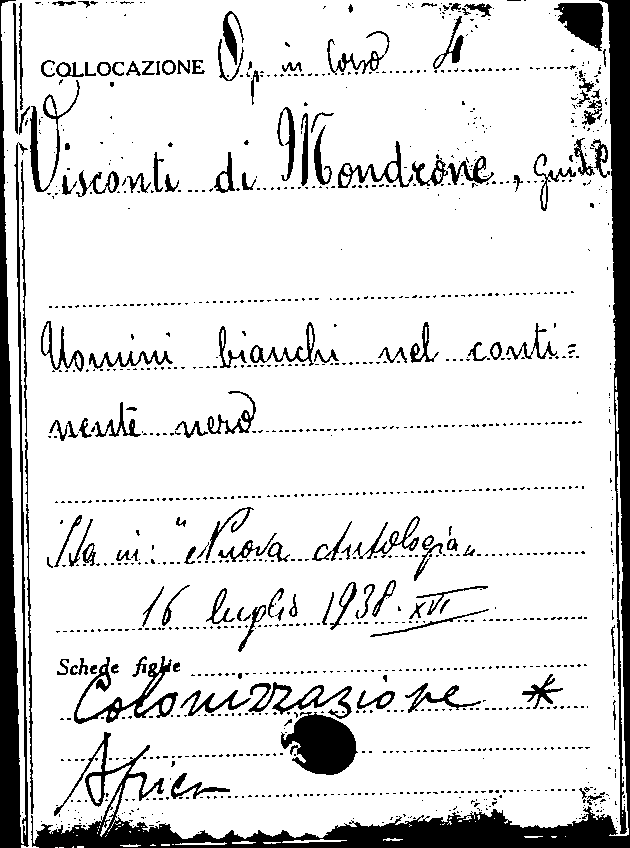 COLLOCAZIONE Op in Corso 4
Visconti di Mondrone, Guido
Uomini bianchi nel conti=
nente nero
Sta in: "Nuova Antologia"
16 luglio 1938. XVI
Schede figlie
Colonizzazione *
Africa